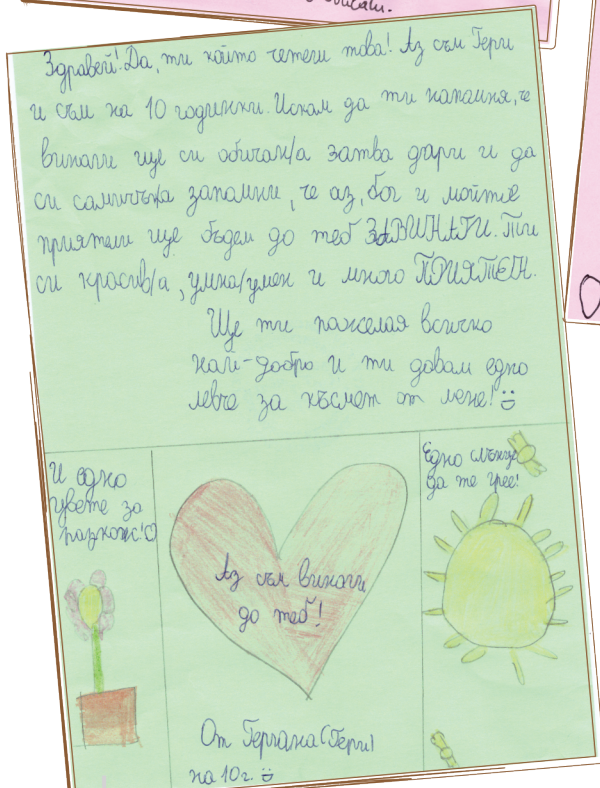 обичат.
Здравей! Да, ти който четеш това! Аз съм Гери
и съм на 10 годинки. Искам да ти напомня, че
винаги ще си обичан/а затва дари и да
си самичък/а запомни, че аз, бог и мойте
приятели ще бъдем до теб ЗАВИНАГИ. Ти
си красив/а, умна/умен и много ПРИЯТЕН.
Ще ти пожелая всичко
най-добро и ти давам едно
левче за късмет от мене! :)
И едно
цвете за
разкош! ♡
Аз съм винаги
до теб!
Едно слънце
да те грее!
От Гергана (Гери)
на 10 г. :)